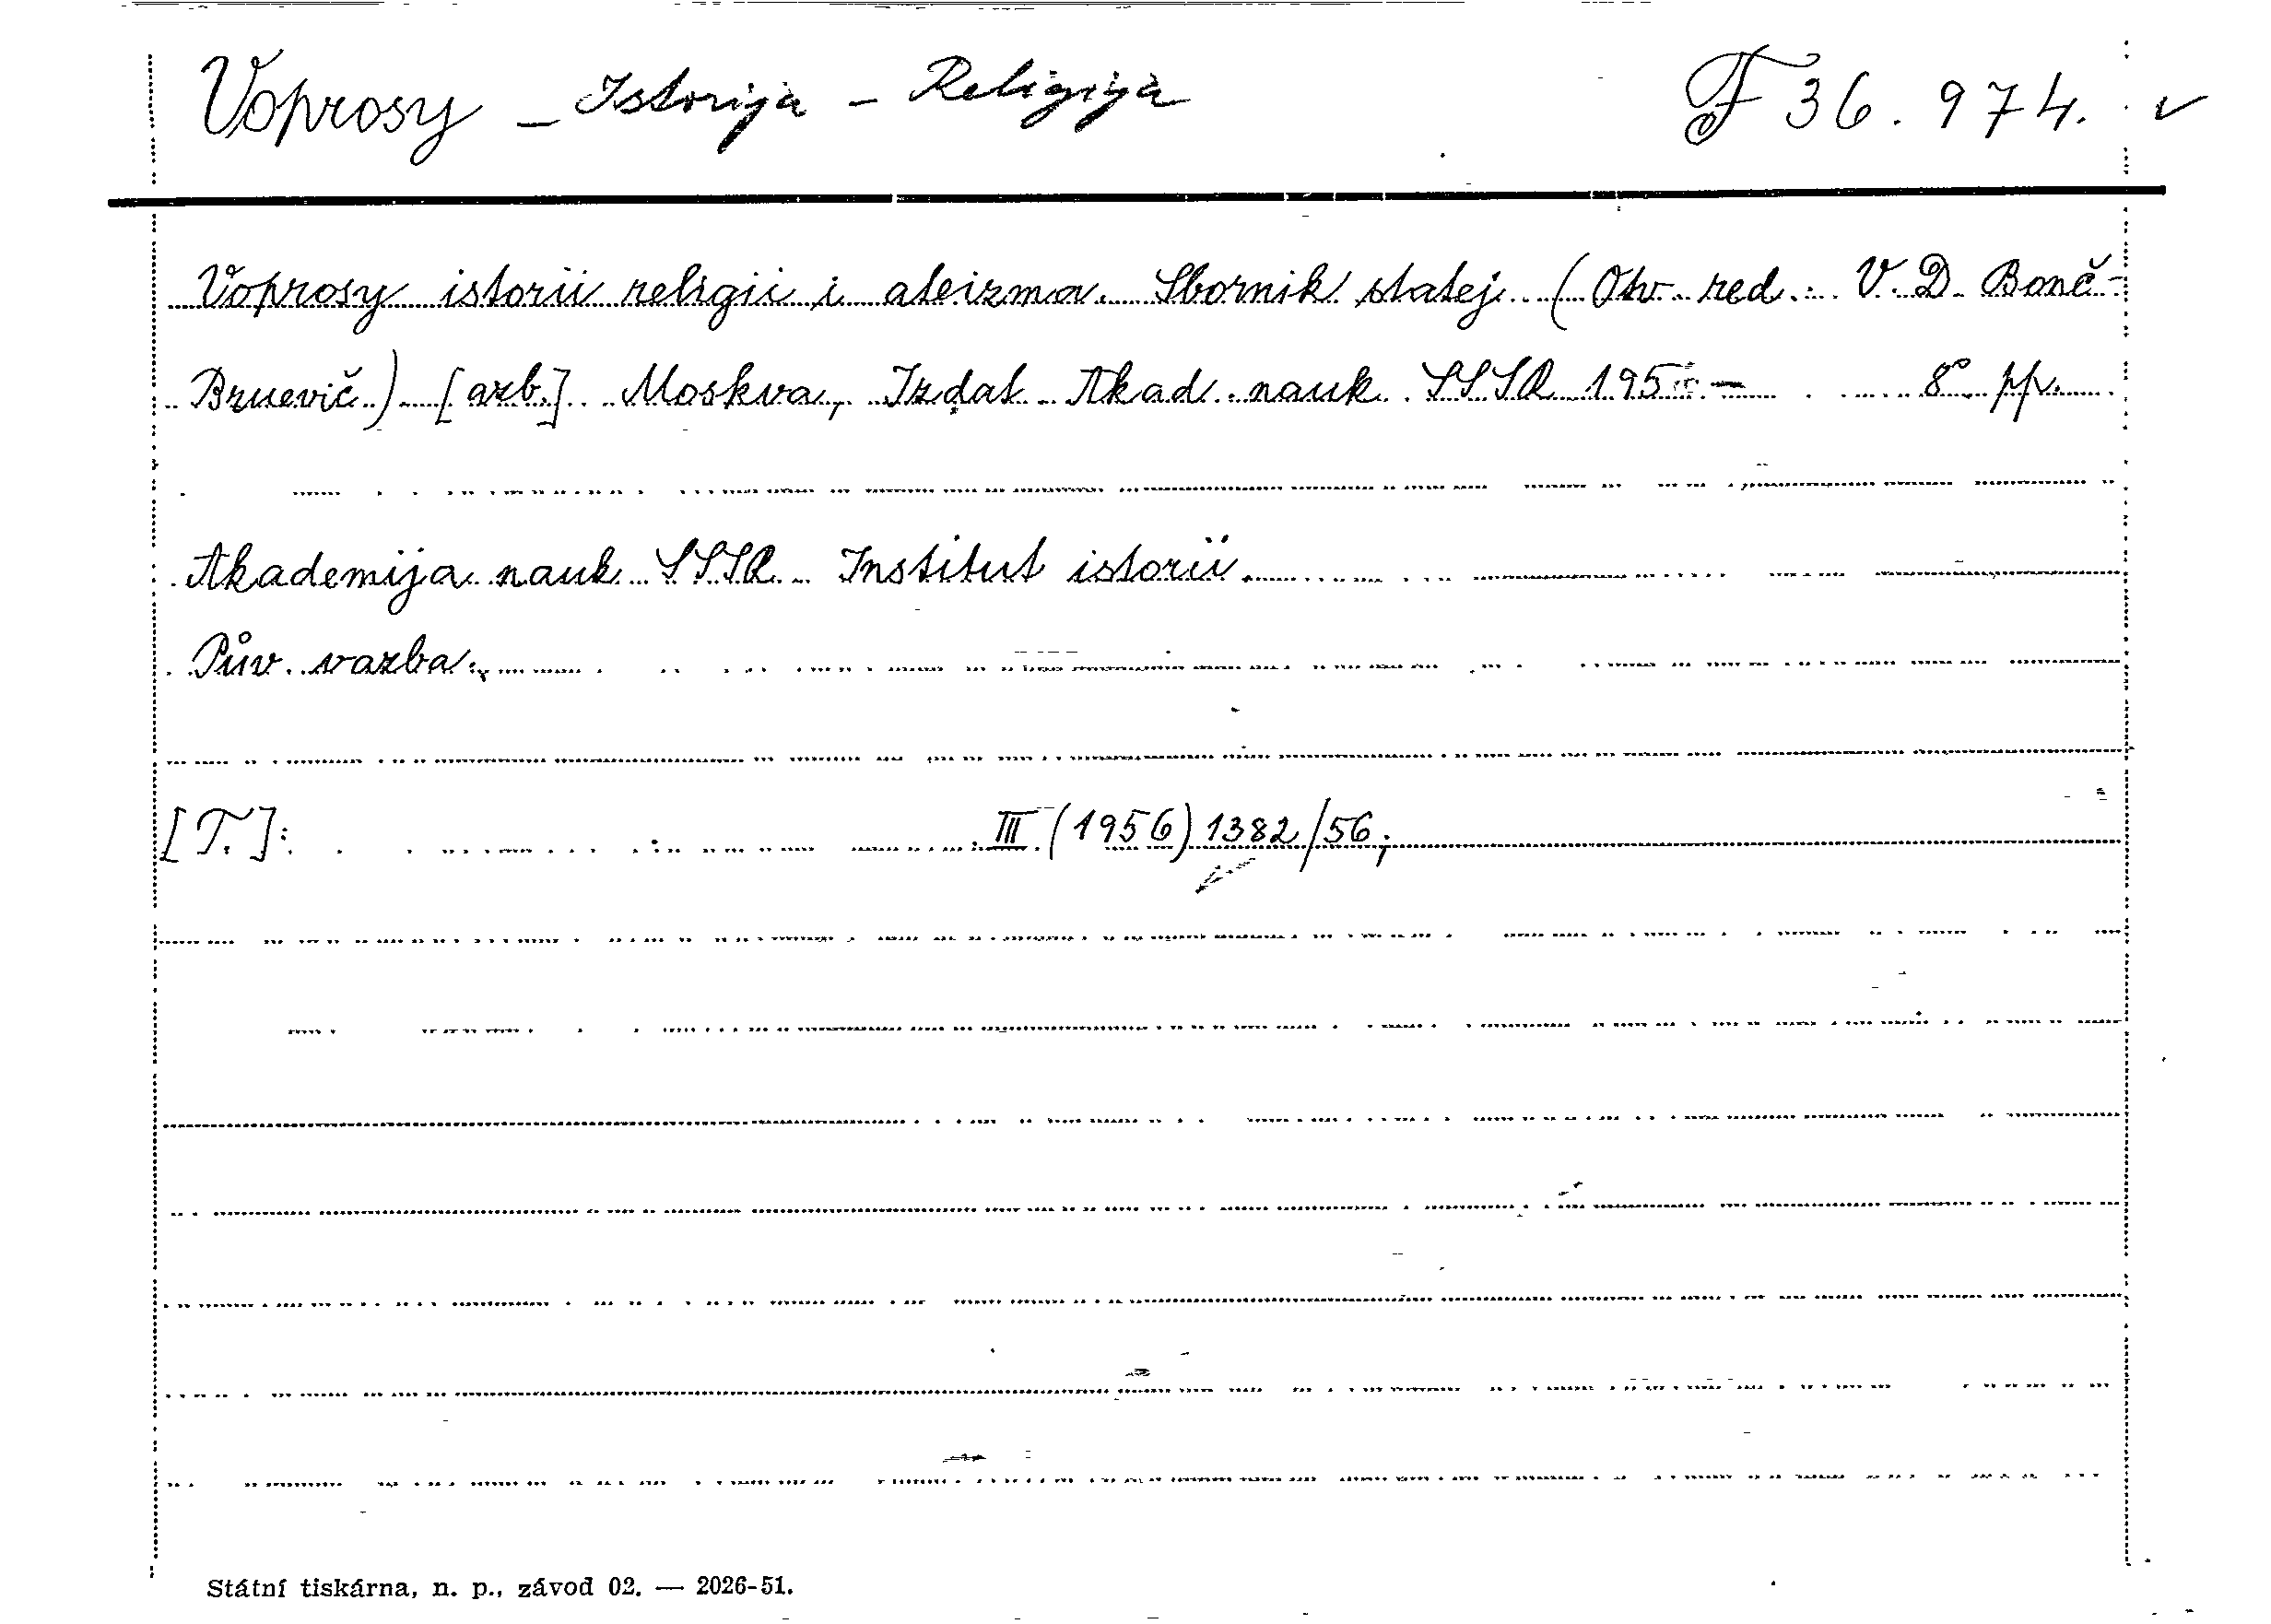 Voprosy - Istorija - Religija F 36.974. ✓
Voprosy istorii religii i ateizma. Sbornik statej. (Otv. red.: V. D. Bonč-
Bruevič) [azb.] Moskva, Izdat. Akad. nauk SSSR 195 – 8° pp.
Akademija nauk SSSR. Institut istorii.
Pův. vazba.
[T.]: III (1956) 1382/56;
Státní tiskárna, n. p., závod 02. — 2026-51.